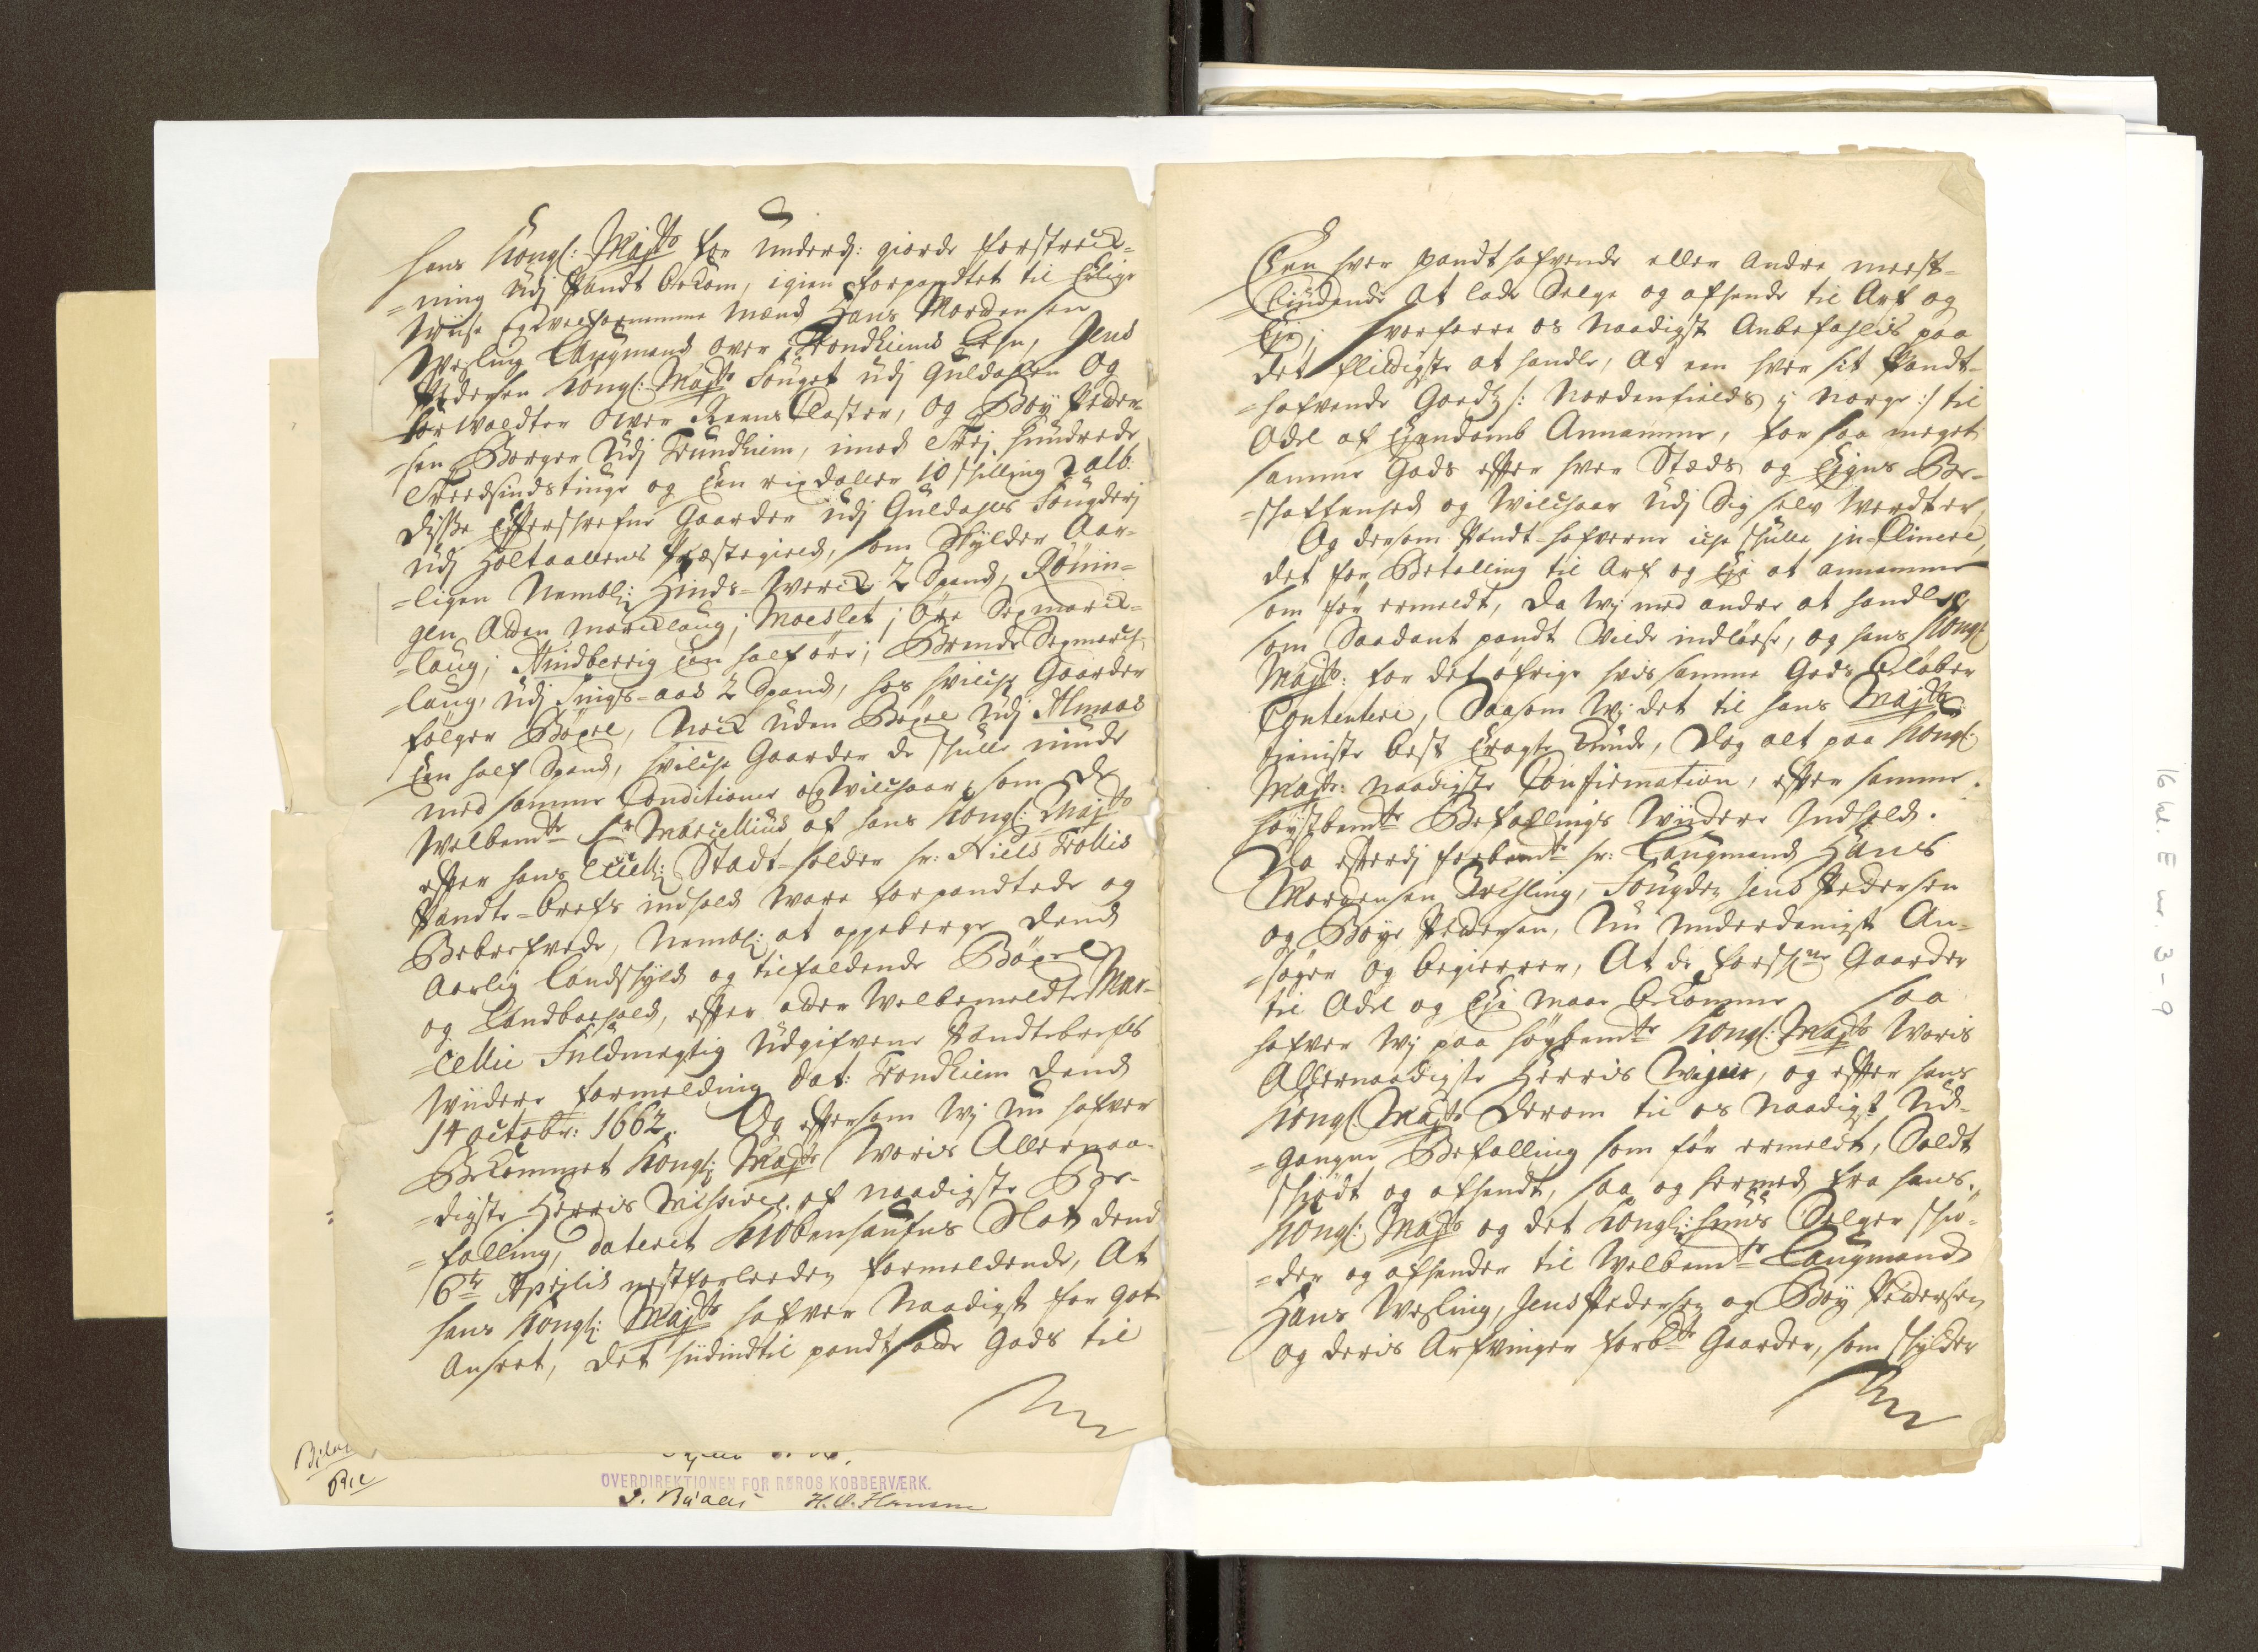 hans Kongl: Mayts for underd: giorde forstreck=
=ning udj Pandt bekom, igien forpandtet til Erlige
Wiise og Velfornemme Mænd Hans Mordensen
Wesling Laugmand over Trondhiems Lehn, Jens
Pedersen Kongl: Mayts Fouget udj Guldahlen og
forwaldter over Reens Closter, og Boy Peder=
=sen Borger udj Trundhiem, imod Trej hundrede
Tredsindstiuge og Een rixdaller 10 skilling 2 alb:
diszse Effterschrefne Gaarder udj Guldahls Fougderj
udj Holtaallens Præstegield, som Skylder Aar=
=ligen Nembl: Hinds=werck 2 Spand, Rönin=
gen Otten marcklaug; Moeslet j Öre Sexmarck=
=laug; Aindberrig een half öre; Bernde Sexmarck=
=laug, udj Sings=aas 2 Spand, hos hvilche Gaarder
følger Böxel, Noch uden Böxel udj Almaas
Een half Spand, hvilche Gaarder de skulle niude
med samme Conditioner og Vilchaar som de
Welbemte Hr Marcellius af hans Kongl: Mayts
effter hans Excell: Stadt=holder hr: Niels Trolles
Pandte=brefs indhold ware forpandtede og
Bebrefvede, Nembl: at oppeberge dend
Aarlig Landskyld og tilfaldende Böxel
og Landboehold, effter eder Welbemeldte Mar=
=cellii Fuldmegtig udgifvene Pandtebrefs
widere formelding Dat: Trondhiem dend
14 octobr: 1662. Og efftersom Wj nu hafver
Bekommet Kongl: Mayts Woris Allernaa=
=digste Herris Missive af naadigste Be=
=falling, dateret Kiöbenhaufns Slot dend
6te Aprilis nestforleeden formeldende, At
hans Kongl: Mayts hafver Naadigst for got
Anseet, det hiidindtil pandtsadte Gods til
Een hver pandthafvende eller Andre meest=
biudende at lade Selge og afhende til Arf og
Eje; hvorforre os Naadigst Anbefahlis paa
det flidigste at handle, At een hver sit Pandt=
=hafvende Goedz /: Nordenfields j Norge :/ til
Odel af Eyendomb Annamme, for saa meget
samme Gods effter hver Stæds og Eigns Be=
=skaffenhed og Wilchaar udj Sig selv Werdt er,
Og dersom Pandt=hafverne iche skulle in-Clinere,
det for Betalling til Arf og Eje at annamme
som før ermeldt, da Wj med andre at handle
som Saadant pandt Vilde indlösse, og hans Kongl
Mayts: for det öfrige hvis samme Gods belöber
Contentere, Saasom Wj det til hans Mayts
tieniste best Eragte Kunde, Dog alt paa Kongl:
Mayts: naadigste Confirmation, effter samme
höystbemte Befallings widere Indhold.
Da effterdj forbemte hr: Laugmand Hans
Mordensen Wesling, Fougden Jens Pedersen
og Boye Pedersen, Nu underdanigst An=
=søger og begierrer, At de forskne Gaarder
til Odel og Eje maae bekomme Saa
hafver Wj paa höybemte Kongl: Mayts Woris
Allernaadigste Herris Wegne, og effter hans
Kongl: Mayts derom til os Naadigst ud=
=gangne Befalling som før ermeldt, Soldt
skiödt og afhendt, saa og hermed fra hans
Kongl: Mayts og det Kongl: huus Selger skiö=
=der og afhender til Welbemte Laugmand
Hans Wesling, Jens Pedersen og Boy Pedersen
og deris Arfvinger forbte Gaarder, som skylder
OVERDIREKTIONEN FOR RØROS KOBBERVÆRK.
16 kl. E nr. 3-9